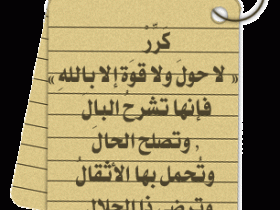 كَرِّرْ
« لا حولَ ولا قوَة إلا باللهِ »
فإنها تشرحُ البال
, وتصلح الحالَ
وتُحمل بها الأثقالُ
وترضي ذا الجلال